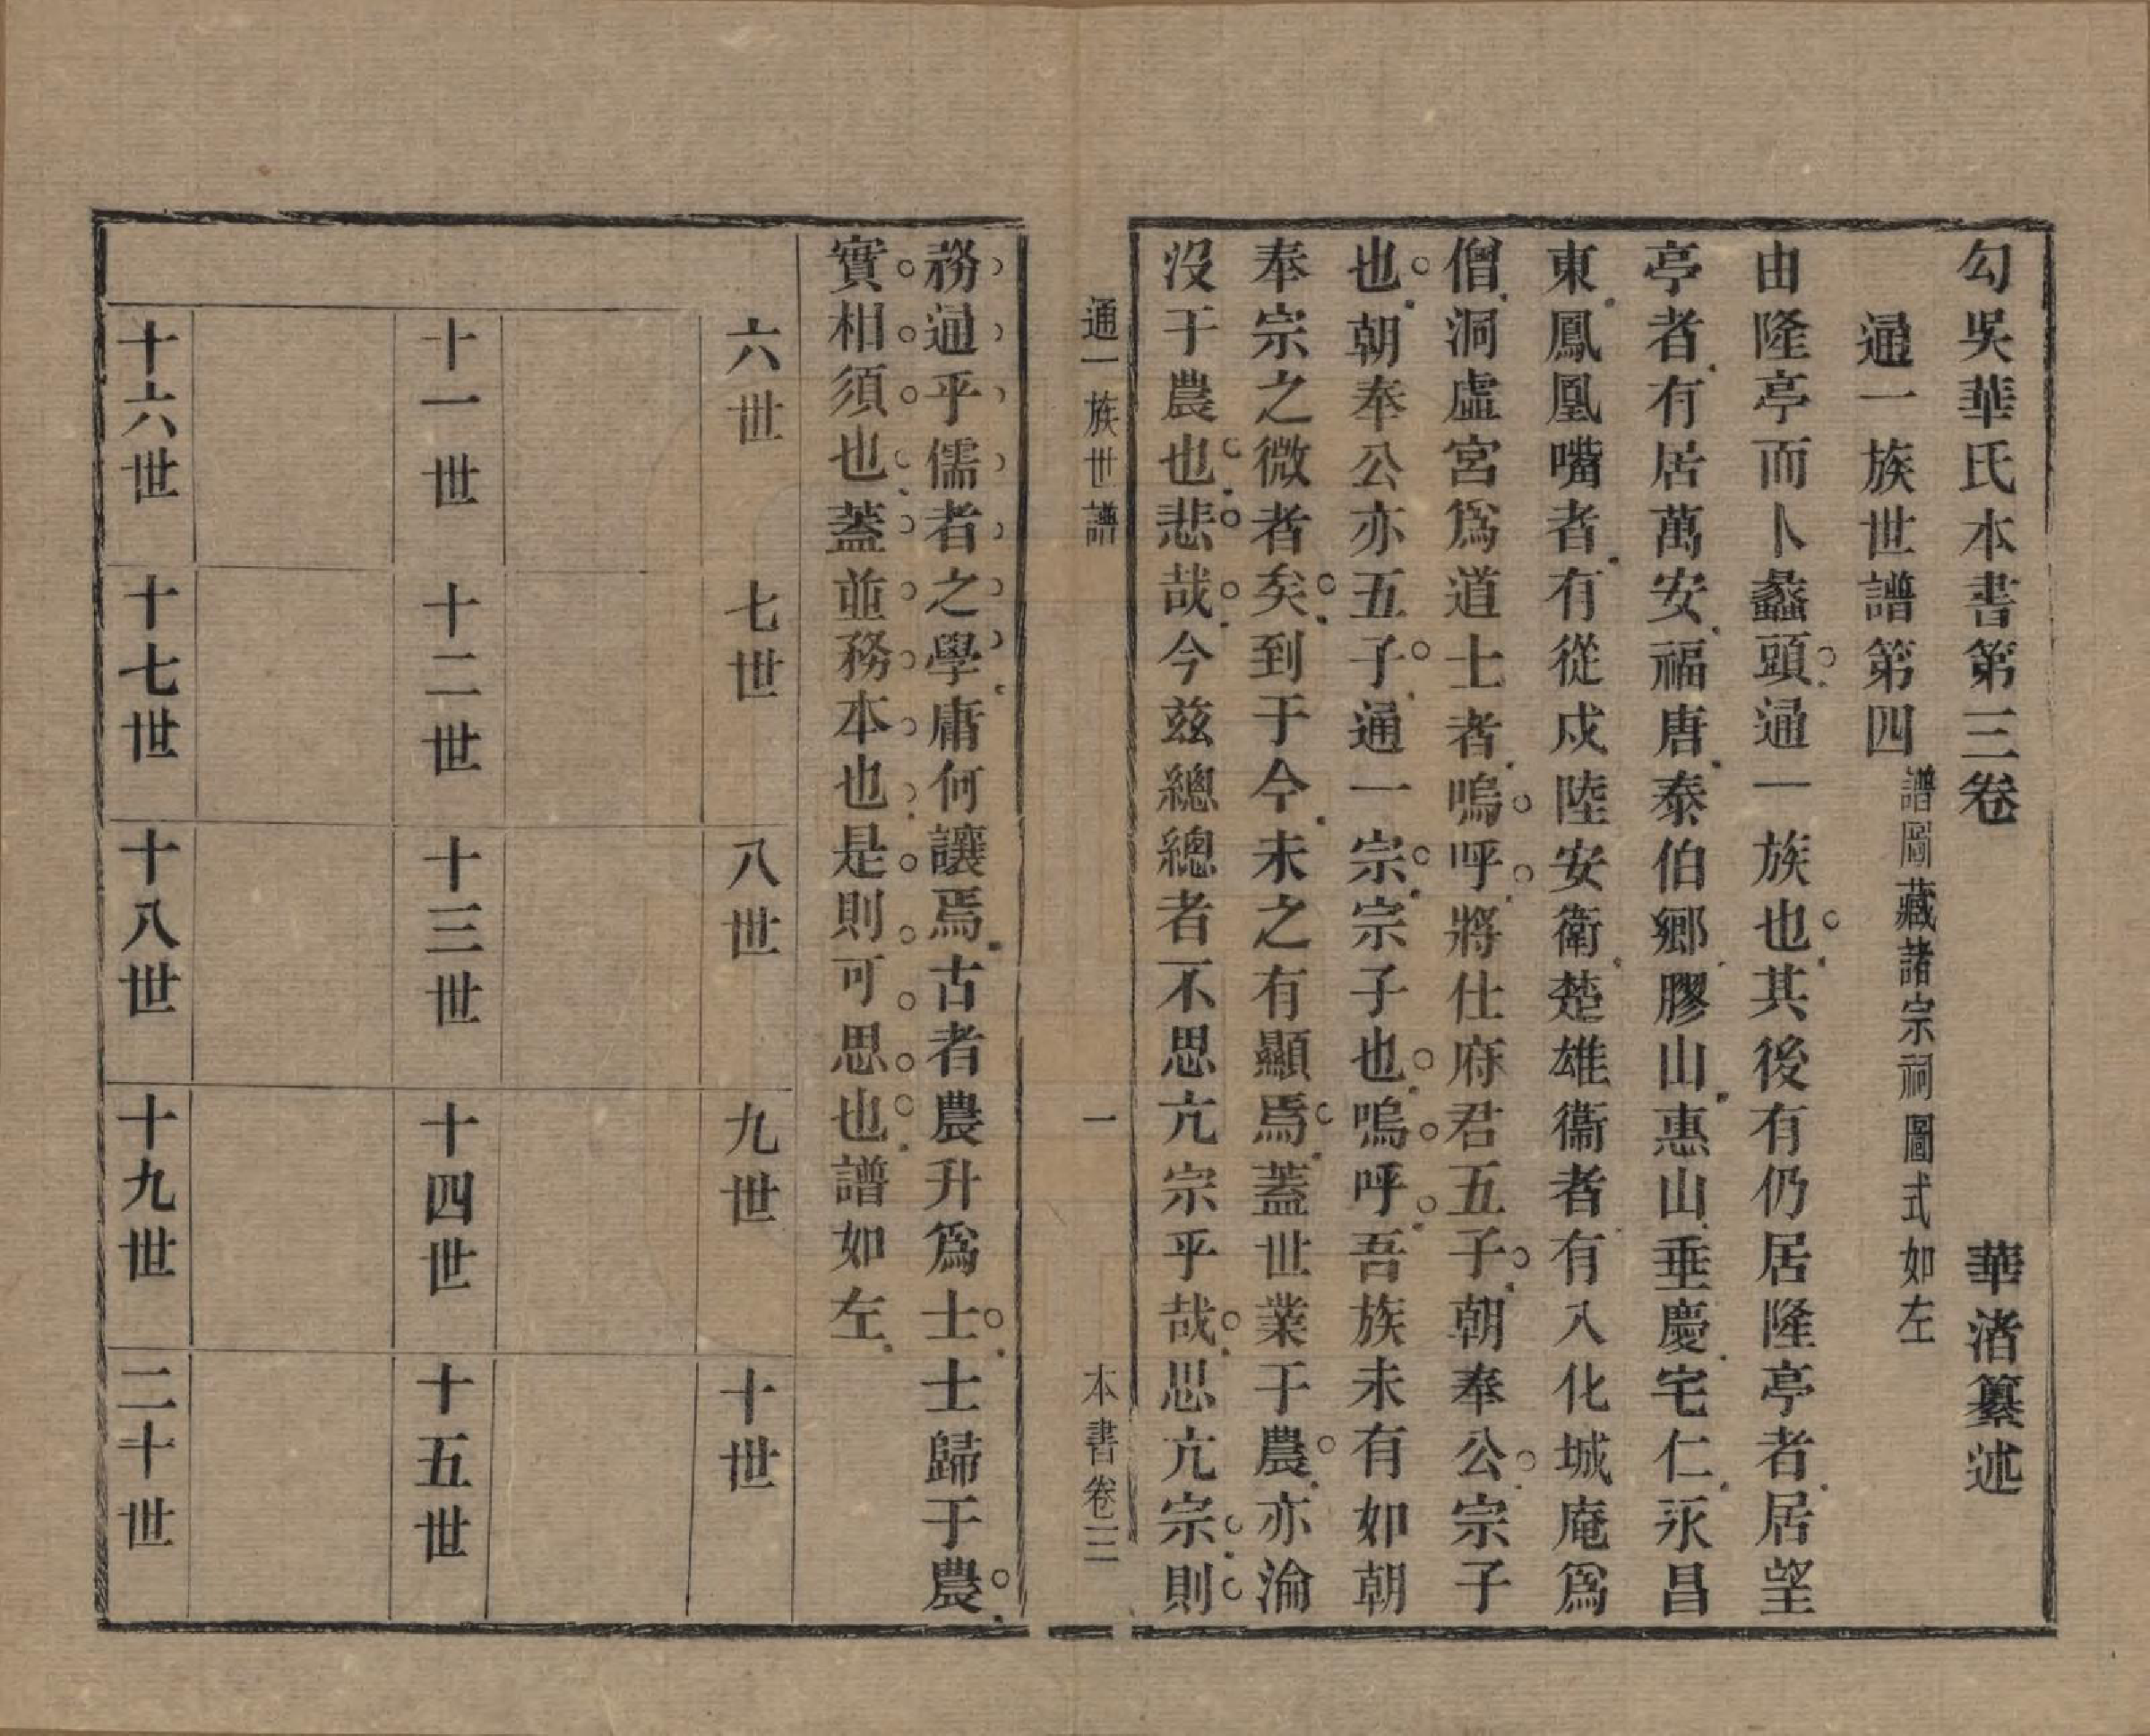 勾吳華氏本書第三卷　華渚纂述
通一族世譜第四　譜圖藏諸宗祠圖式如左
由隆亭而卜蠡頭通一族也其後有仍居隆亭者居望
亭者有居萬安福唐泰伯鄉膠山惠山垂慶宅仁永昌
東鳳凰嘴者有從戍陸安衛楚雄衛者有入化城庵爲
僧洞虛宮爲道士者嗚呼將仕府君五子朝奉公宗子
也朝奉公亦五子通一宗宗子也嗚呼吾族未有如朝
奉宗之微者矣到于今未之有顯焉蓋世業于農亦淪
沒于農也悲哉今玆總總者不思亢宗乎哉思亢宗則
通一族世譜　一　本書卷三
務通乎儒者之學庸何讓焉古者農升爲士士歸于農
實相須也蓋並務本也是則可思也譜如左
六世　七世　八世　九世　十世
十一世　十二世　十三世　十四世　十五世
十六世　十七世　十八世　十九世　二十世